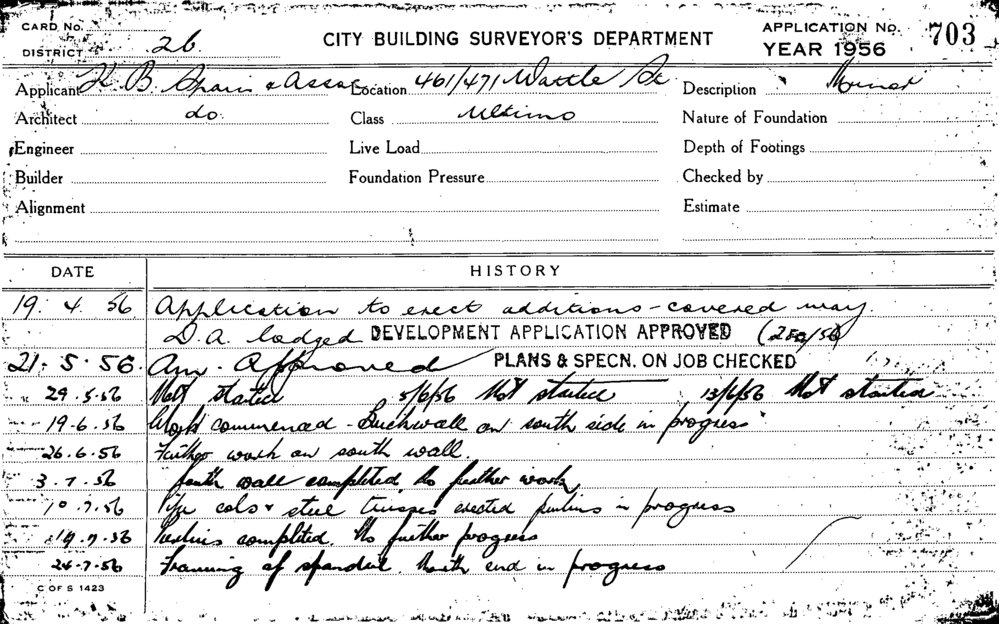 CARD No.
DISTRICT 26.
CITY BUILDING SURVEYOR'S DEPARTMENT
APPLICATION No. 703
YEAR 1956
Applicant H. B. Spain & Assoc Location 461/471 Wattle St Description Minor
Architect do. Class Ultimo Nature of Foundation
Engineer Live Load Depth of Footings
Builder Foundation Pressure Checked by
Alignment Estimate
DATE HISTORY
19. 4. 56 Application to erect additions - covered way.
D.A. lodged DEVELOPMENT APPLICATION APPROVED
21. 5. 56. Approved PLANS & SPECN. ON JOB CHECKED
29.5.56 Not started 5/6/56 Not started 13/6/56 Not started
19.6.56 Work commenced - Brickwall on south side in progress
26.6.56 Further work on south wall.
3.7.56 South wall completed No further work
10.7.56 Pipe cols & steel trusses erected purlins in progress
Purlins completed. No further progress
24.7.56 Framing of spandril North end in progress
C OF S 1423